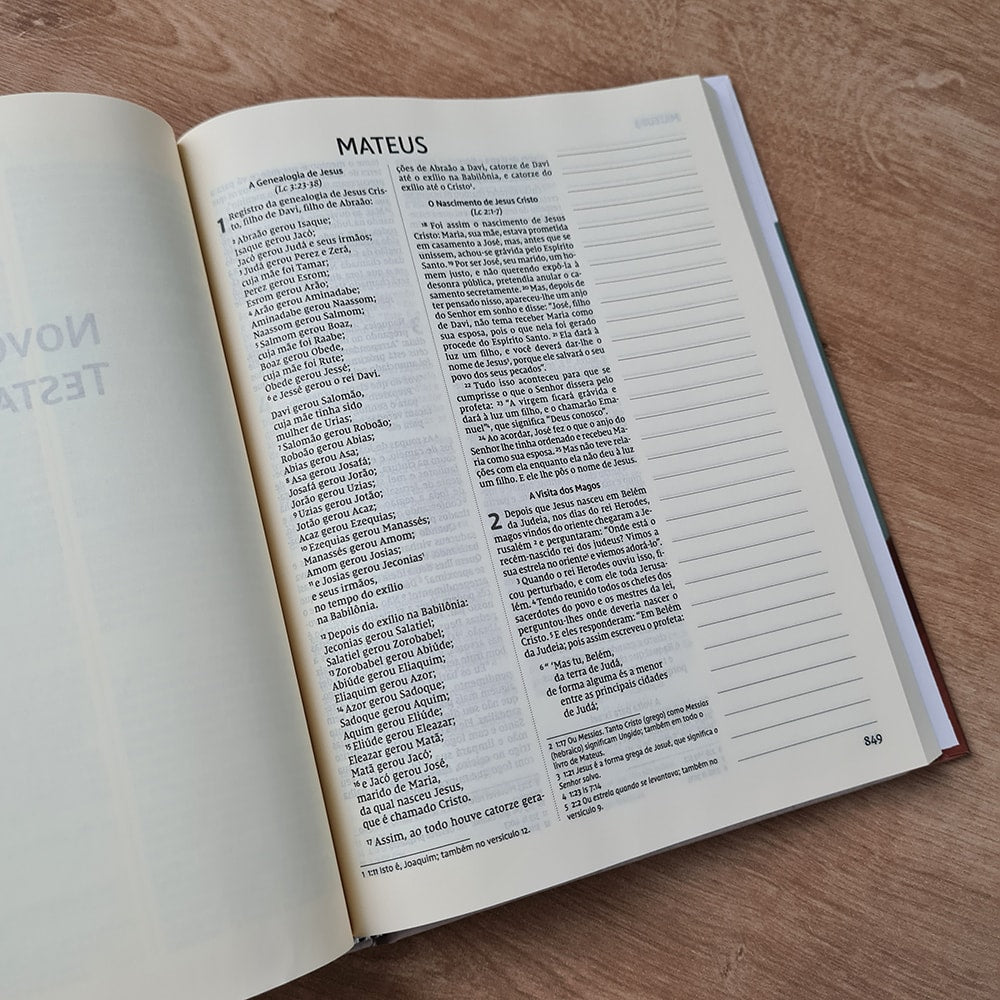 MATEUS
A Genealogia de Jesus
(Lc 3:23-38)
1 Registro da genealogia de Jesus Cris-
to, filho de Davi, filho de Abraão:
2 Abraão gerou Isaque;
Isaque gerou Jacó;
Jacó gerou Judá e seus irmãos;
3 Judá gerou Perez e Zerá,
cuja mãe foi Tamar;
Perez gerou Esrom;
Esrom gerou Arão;
4 Arão gerou Aminadabe;
Aminadabe gerou Naassom;
Naassom gerou Salmom;
5 Salmom gerou Boaz,
cuja mãe foi Raabe;
Boaz gerou Obede,
cuja mãe foi Rute;
Obede gerou Jessé;
6 e Jessé gerou o rei Davi.
Davi gerou Salomão,
cuja mãe tinha sido
mulher de Urias;
7 Salomão gerou Roboão;
Roboão gerou Abias;
Abias gerou Asa;
8 Asa gerou Josafá;
Josafá gerou Jorão;
Jorão gerou Uzias;
9 Uzias gerou Jotão;
Jotão gerou Acaz;
Acaz gerou Ezequias;
10 Ezequias gerou Manassés;
Manassés gerou Amom;
Amom gerou Josias;
11 e Josias gerou Jeconias1
e seus irmãos,
no tempo do exílio
na Babilônia.
12 Depois do exílio na Babilônia:
Jeconias gerou Salatiel;
Salatiel gerou Zorobabel;
13 Zorobabel gerou Abiúde;
Abiúde gerou Eliaquim;
Eliaquim gerou Azor;
14 Azor gerou Sadoque;
Sadoque gerou Aquim;
Aquim gerou Eliúde;
15 Eliúde gerou Eleazar;
Eleazar gerou Matã;
Matã gerou Jacó;
16 e Jacó gerou José,
marido de Maria,
da qual nasceu Jesus,
que é chamado Cristo.
17 Assim, ao todo houve catorze gera-
1 1:11 Isto é, Joaquim; também no versículo 12.
ções de Abraão a Davi, catorze de Davi
até o exílio na Babilônia, e catorze do
exílio até o Cristo2.
O Nascimento de Jesus Cristo
(Lc 2:1-7)
18 Foi assim o nascimento de Jesus
Cristo: Maria, sua mãe, estava prometida
em casamento a José, mas, antes que se
unissem, achou-se grávida pelo Espírito
Santo. 19 Por ser José, seu marido, um ho-
mem justo, e não querendo expô-la à
desonra pública, pretendia anular o ca-
samento secretamente. 20 Mas, depois de
ter pensado nisso, apareceu-lhe um anjo
do Senhor em sonho e disse: "José, filho
de Davi, não tema receber Maria como
sua esposa, pois o que nela foi gerado
procede do Espírito Santo. 21 Ela dará à
luz um filho, e você deverá dar-lhe o
nome de Jesus3, porque ele salvará o seu
povo dos seus pecados".
22 Tudo isso aconteceu para que se
cumprisse o que o Senhor dissera pelo
profeta: 23 "A virgem ficará grávida e
dará à luz um filho, e o chamarão Ema-
nuel"4, que significa "Deus conosco".
24 Ao acordar, José fez o que o anjo do
Senhor lhe tinha ordenado e recebeu Ma-
ria como sua esposa. 25 Mas não teve rela-
ções com ela enquanto ela não deu à luz
um filho. E ele lhe pôs o nome de Jesus.
A Visita dos Magos
2 Depois que Jesus nasceu em Belém
da Judeia, nos dias do rei Herodes,
magos vindos do oriente chegaram a Je-
rusalém 2 e perguntaram: "Onde está o
recém-nascido rei dos judeus? Vimos a
sua estrela no oriente5 e viemos adorá-lo".
3 Quando o rei Herodes ouviu isso, fi-
cou perturbado, e com ele toda Jerusa-
lém. 4 Tendo reunido todos os chefes dos
sacerdotes do povo e os mestres da lei,
perguntou-lhes onde deveria nascer o
Cristo. 5 E eles responderam: "Em Belém
da Judeia; pois assim escreveu o profeta:
6 " 'Mas tu, Belém,
da terra de Judá,
de forma alguma és a menor
entre as principais cidades
de Judá;
2 1:17 Ou Messias. Tanto Cristo (grego) como Messias
(hebraico) significam Ungido; também em todo o
livro de Mateus.
3 1:21 Jesus é a forma grega de Josué, que significa o
Senhor salva.
4 1:23 Is 7:14
5 2:2 Ou estrela quando se levantava; também no
versículo 9.
849